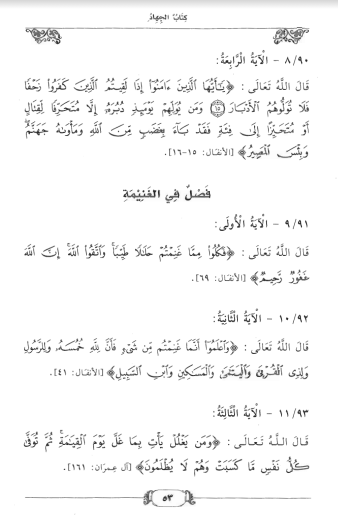 كِتَابُ الْجِهَادِ
٨/٩٠ - الْآيَةُ الرَّابِعَةُ:
قَالَ اللَّهُ تَعَالَى: ﴿يَٰٓأَيُّهَا ٱلَّذِينَ ءَامَنُوٓا۟ إِذَا لَقِيتُمُ ٱلَّذِينَ كَفَرُوا۟ زَحْفًا
فَلَا تُوَلُّوهُمُ ٱلْأَدْبَارَ ١٥ وَمَن يُوَلِّهِمْ يَوْمَئِذٍ دُبُرَهُۥٓ إِلَّا مُتَحَرِّفًا لِّقِتَالٍ
أَوْ مُتَحَيِّزًا إِلَىٰ فِئَةٍ فَقَدْ بَآءَ بِغَضَبٍ مِّنَ ٱللَّهِ وَمَأْوَىٰهُ جَهَنَّمُ
وَبِئْسَ ٱلْمَصِيرُ﴾ [الأنفال: ١٥-١٦].
فَصْلٌ فِي الْغَنِيمَةِ
٩/٩١ - الْآيَةُ الْأُولَى:
قَالَ اللَّهُ تَعَالَى: ﴿فَكُلُوا۟ مِمَّا غَنِمْتُمْ حَلَٰلًا طَيِّبًا وَٱتَّقُوا۟ ٱللَّهَ إِنَّ ٱللَّهَ
غَفُورٌ رَّحِيمٌ﴾ [الأنفال: ٦٩].
١٠/٩٢ - الْآيَةُ الثَّانِيَةُ:
قَالَ اللَّهُ تَعَالَى: ﴿وَٱعْلَمُوٓا۟ أَنَّمَا غَنِمْتُم مِّن شَىْءٍ فَأَنَّ لِلَّهِ خُمُسَهُۥ وَلِلرَّسُولِ
وَلِذِى ٱلْقُرْبَىٰ وَٱلْيَتَٰمَىٰ وَٱلْمَسَٰكِينِ وَٱبْنِ ٱلسَّبِيلِ﴾ [الأنفال: ٤١].
١١/٩٣ - الْآيَةُ الثَّالِثَةُ:
قَالَ اللَّهُ تَعَالَى: ﴿وَمَن يَغْلُلْ يَأْتِ بِمَا غَلَّ يَوْمَ ٱلْقِيَٰمَةِ ثُمَّ تُوَفَّىٰ
كُلُّ نَفْسٍ مَّا كَسَبَتْ وَهُمْ لَا يُظْلَمُونَ﴾ [آل عِمرَان: ١٦١].
٥٣